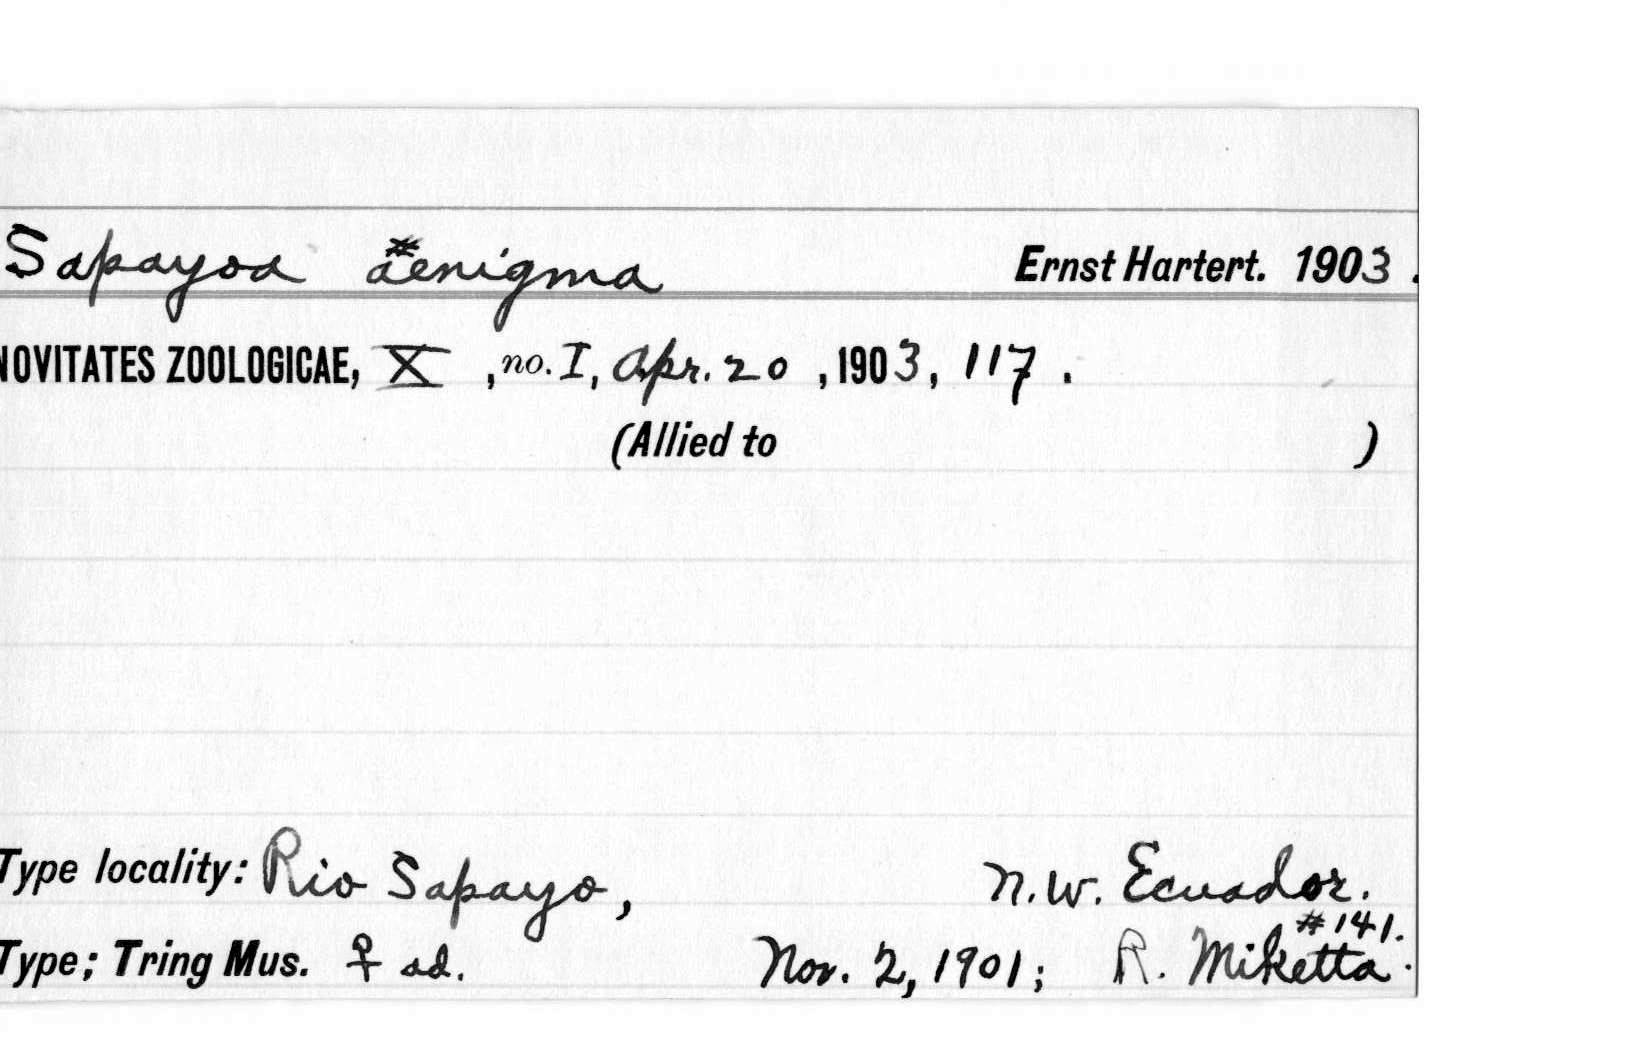 Sapayoa aenigma Ernst Hartert. 1903.
NOVITATES ZOOLOGICAE, X, no. I, Apr. 20, 1903, 117.
(Allied to )
Type locality: Rio Sapayo, N.W. Ecuador.
#141.
Type; Tring Mus. ♀ ad. Nov. 2, 1901; R. Miketta.